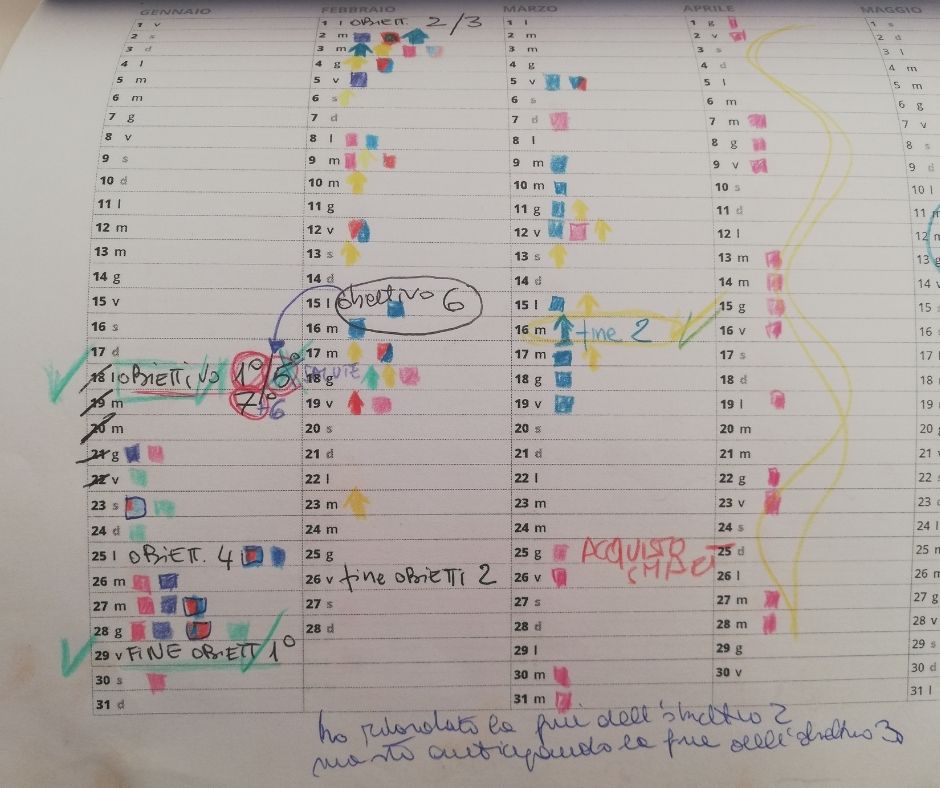 GENNAIO
1 v
2 s
3 d
4 l
5 m
6 m
7 g
8 v
9 s
10 d
11 l
12 m
13 m
14 g
15 v
16 s
17 d
18 l OBIETTIVO 1°/5°
19 m 7° +6
20 m
21 g
22 v
23 s
24 d
25 l OBIETT. 4
26 m
27 m
28 g
29 v FINE OBIETT 1°
30 s
31 d
FEBBRAIO
1 l OBIETT. 2/3
2 m
3 m
4 g
5 v
6 s
7 d
8 l
9 m
10 m
11 g
12 v
13 s
14 d
15 l obiettivo 6
16 m
17 m
18 g SALUTE
19 v
20 s
21 d
22 l
23 m
24 m
25 g
26 v fine OBIETTI 2
27 s
28 d
MARZO
1 l
2 m
3 m
4 g
5 v
6 s
7 d
8 l
9 m
10 m
11 g
12 v
13 s
14 d
15 l
16 m fine 2
17 m
18 g
19 v
20 s
21 d
22 l
23 m
24 m
25 g ACQUISTO
26 v
27 s
28 d
29 l
30 m
31 m
APRILE
1 g
2 v
3 s
4 d
5 l
6 m
7 m
8 g
9 v
10 s
11 d
12 l
13 m
14 m
15 g
16 v
17 s
18 d
19 l
20 m
21 m
22 g
23 v
24 s
25 d
26 l
27 m
28 m
29 g
30 v
MAGGIO
1 s
2 d
3 l
4 m
5 m
6 g
7 v
8 s
9 d
10 l
11 m
12 m
13 g
14 v
15 s
16
17
18
19
20 g
21 v
22 s
23
24
25 m
26 m
27 g
28 v
29 s
30 d
31 l
ho ritardato la fine dell'obiettivo 2
ma sto anticipando la fine dell'obiettivo 3